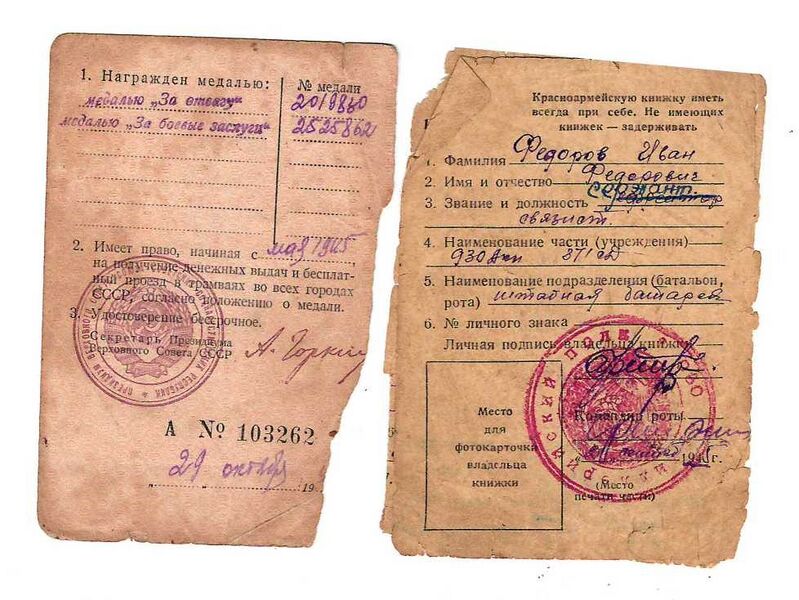 1. Награжден медалью:
№ медали
медалью „За отвагу"
2019860
медалью „За боевые заслуги"
2525862
2. Имеет право, начиная с май 1945
на получение денежных выдач и бесплат-
ный проезд в трамваях во всех городах
СССР, согласно положению о медали.
3. Удостоверение бессрочное.
Секретарь Президиума
Верховного Совета СССР
А. Горкин
А № 103262
29 октября
19
Красноармейскую книжку иметь
всегда при себе. Не имеющих
книжек — задерживать
1. Фамилия Федоров Иван
2. Имя и отчество Федорович
сержант.
3. Звание и должность
связист.
4. Наименование части (учреждения)
930 871
5. Наименование подразделения (батальон,
рота) штабная батарея
6. № личного знака
Личная подпись владельца книжки
Место
для
фотокарточки
владельца
книжки
Командир роты
194 г.
(Место
печати части)